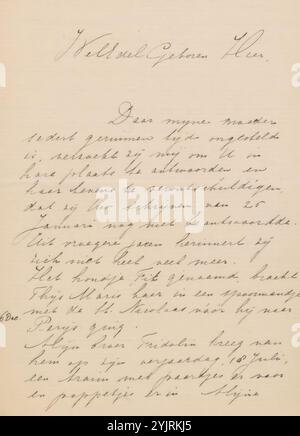 WelEdelGeboren Heer,
Daar mijne moeder
sedert geruimen tijd ongesteld
is, verzocht zij mij om U in
hare plaats te antwoorden en
haar tevens te verontschuldigen,
dat zij Uw schrijven van 25
Januari nog niet beantwoordde.
Uit vroegere jaren herinnert zij
zich niet heel veel meer.
Het hondje Fik genaamd bracht
Thijs Maris haar in een spoormandje
6 Dec. met de St. Nicolaas vóór hij naar
Parijs ging.
Mijn broer Fridolin kreeg van
hem op zijn verjaardag, 18 Juli,
een tram met paardjes er voor
en poppetjes er in. Mijne
alamy
Image ID: 2YJRKJ5
www.alamy.com